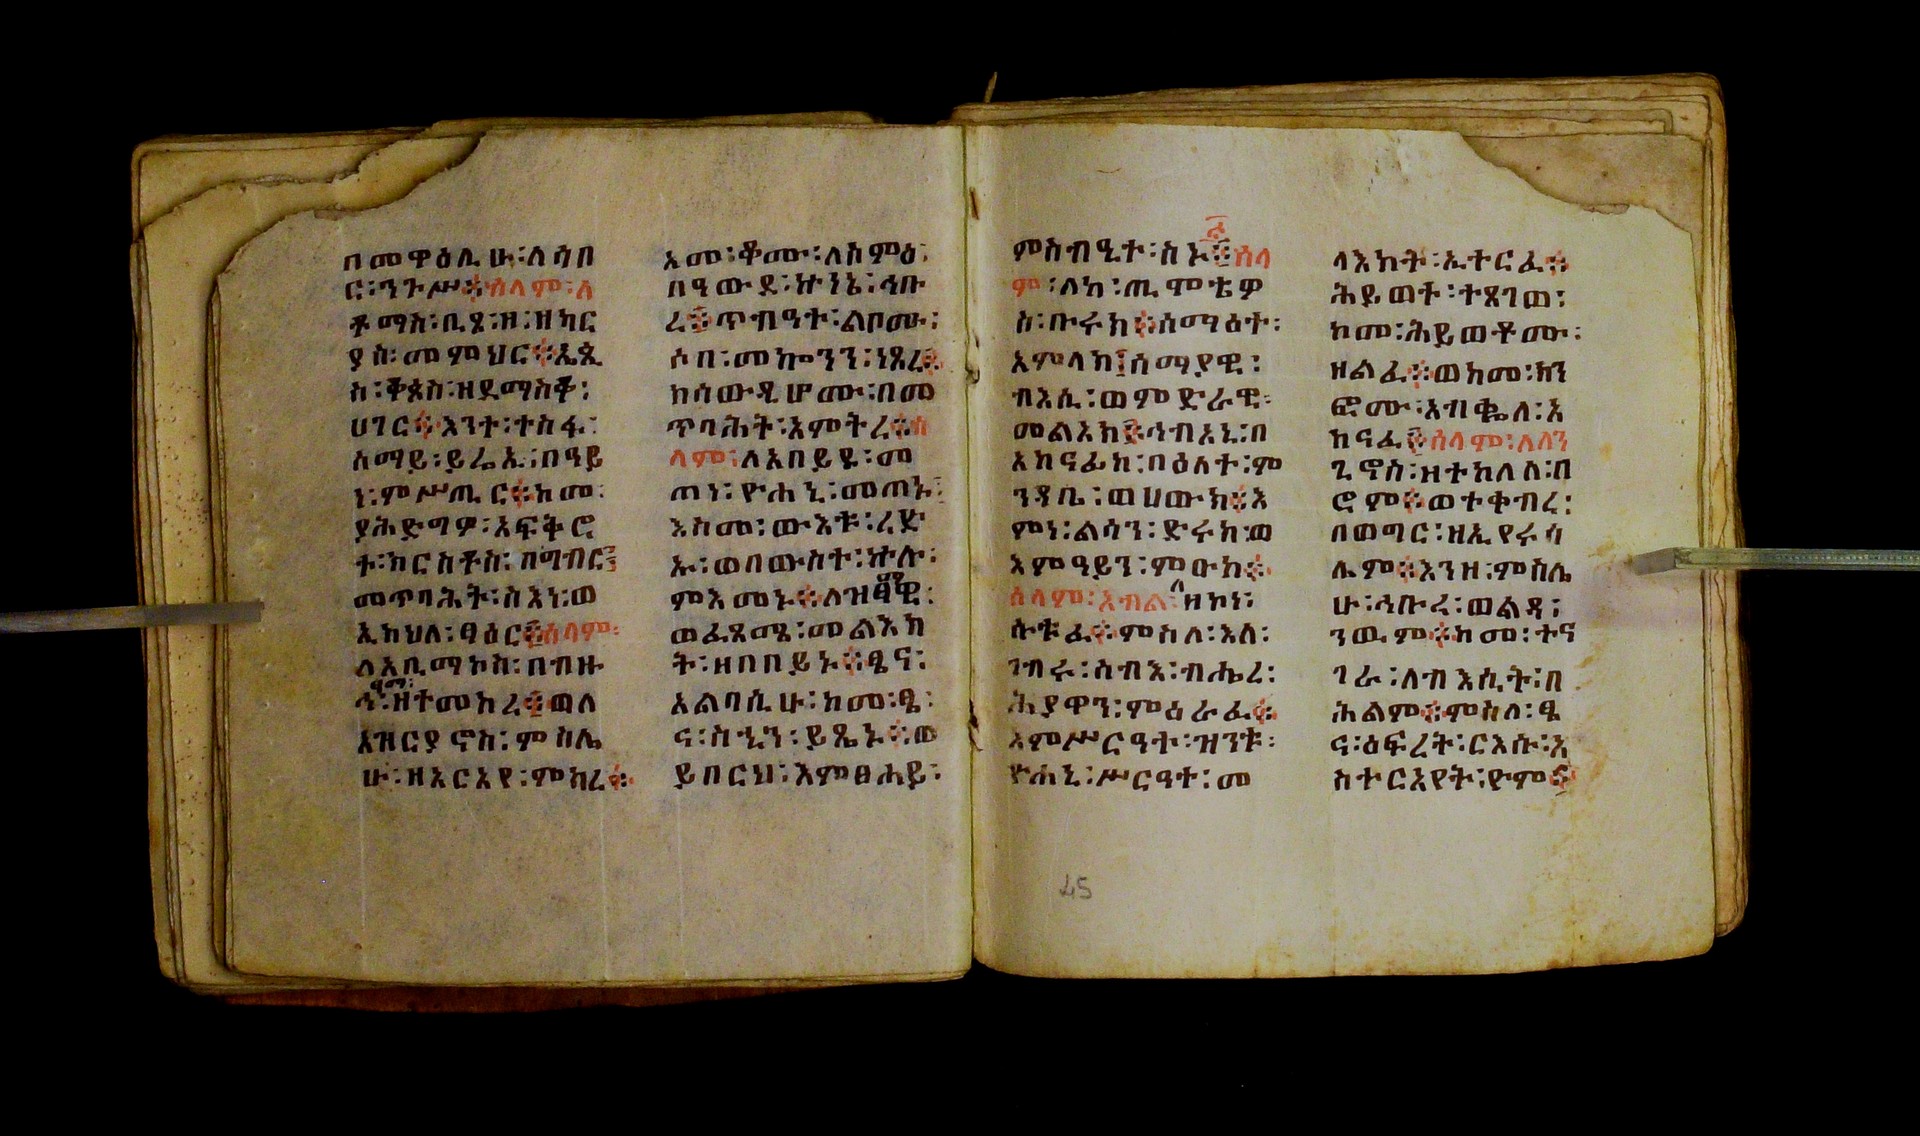 በመዋዕሊሁ፡ለሳበ
ር፡ንጉሥ፨ሰላም፡ለ
ቶማስ፡ቢጼ፡ዘ፡ዘካር
ያስ፡መምህር፨ጴጲ
ስ፡ቆጶስ፡ዘደማስቆ፡
ሀገር፨እንተ፡ተስፋ፡
ሰማይ፡ይሬኢ፡በዓይ
ን፡ምሥጢር፨ከመ፡
ያሕድግዎ፡አፍቅሮ
ተ፡ክርስቶስ፡በግብር፨
መጥባሕት፡ስእነ፡ወ
ኢክህለ፡ፃዕር፨ሰላም፡
ለአቢማኮስ፡በብዙ
ኅ፡ዓማ፡ዘተመከረ፨ወለ
አዝርያኖስ፡ምስሌ
ሁ፡ዘአርአየ፡ምክረ፨
አመ፡ቆሙ፡ለስምዕ፡
በዓውደ፡ኵነኔ፡ኅቡ
ረ፨ጥብዓተ፡ልቦሙ፡
ሶበ፡መኰንን፡ነጸረ፨
ከሳውዲሆሙ፡በመ
ጥባሕት፡እምትረ፨ሰ
ላም፡ለአበይዩ፡መ
ጠነ፡ዮሐኒ፡መጠኑ፡
እስመ፡ውእቱ፡ረድ
ኡ፡ወበውስተ፡ኵሉ፡
ምእመኑ፨ለዝፃማዊ፡
ወፈጸሜ፡መልእክ
ት፡ዘበበይኑ፨ፄና፡
አልባሲሁ፡ከመ፡ፄ፡
ና፡ስኂን፡ይጼኑ፨ወ
ይበርህ፡እምፀሐይ፡
ምስብዒተ፡ስኑ፨ሰላ
ም፡ለከ፡ጢሞቴዎ
ስ፡ቡሩክ፨ሰማዕተ፡
አምላክ፡ሰማያዊ፡
ብእሲ፡ወምድራዊ፡
መልአክ፨ኅብአኒ፡በ
አክናፊከ፡በዕለተ፡ም
ንዳቤ፡ወሀውክ፨እ
ምነ፡ልሳን፡ድሩክ፡ወ
እምዓይን፡ምዑክ፨
ሰላም፡እብል፡ለዘኮነ፡
ሱቱፈ፨ምስለ፡እለ፡
ገብሩ፡ስብእ፡ብሔረ፡
ሕያዋን፡ምዕራፈ፨
እምሥርዓተ፡ዝንቱ፡
ዮሐኒ፡ሥርዓተ፡መ
ላእክት፡ኢተርፈ፨
ሕይወተ፡ተጸገወ፡
ከመ፡ሕይወቶሙ፡
ዘልፈ፨ወከመ፡ክን
ፎሙ፡አብቈለ፡አ
ክናፈ፨ሰላም፡ለለን
ጊኖስ፡ዘተከለለ፡በ
ሮም፨ወተቀብረ፡
በወግር፡ዘኢየሩሳ
ሌም፨እንዘ፡ምስሌ
ሁ፡ኅቡረ፡ወልዳ፡
ንዉም፨ከመ፡ተና
ገራ፡ለብእሲት፡በ
ሕልም፨ምስለ፡ፄ
ና፡ዕፍረት፡ርእሱ፡አ
ስተርአየት፡ዮም፨
45